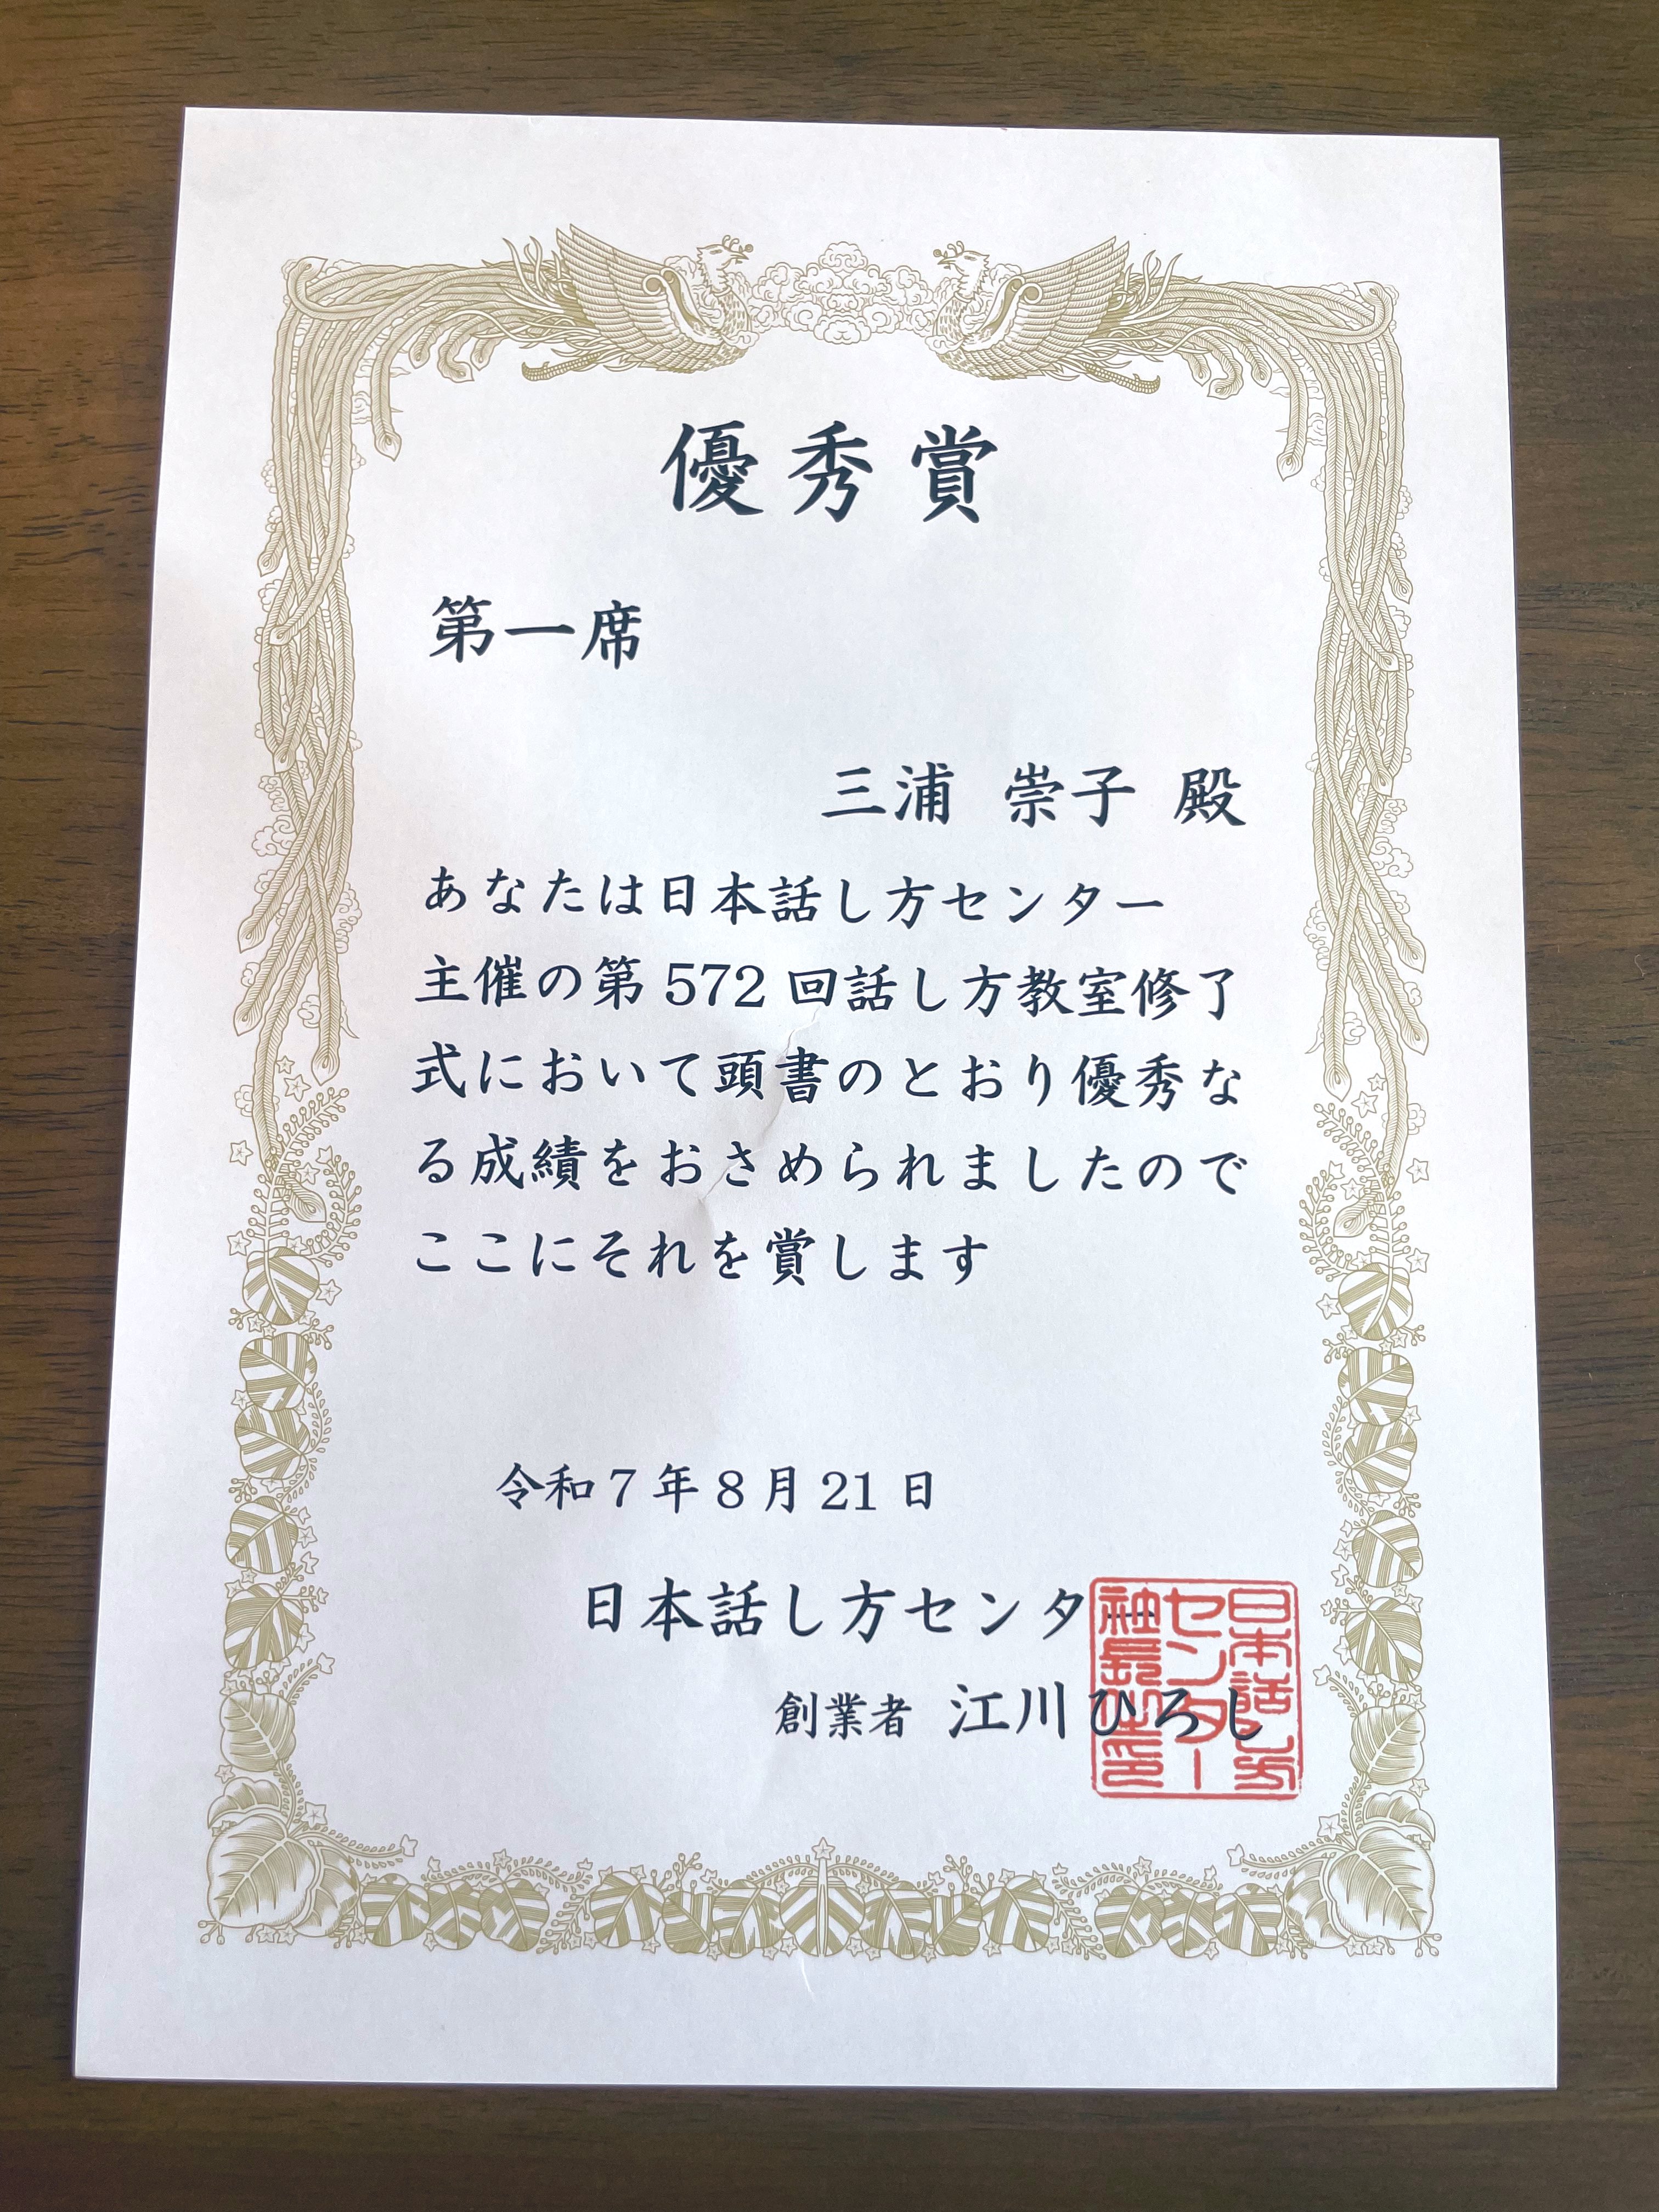 優秀賞
第一席
三浦 崇子 殿
あなたは日本話し方センター
主催の第572回話し方教室修了
式において頭書のとおり優秀な
る成績をおさめられましたので
ここにそれを賞します
令和7年8月21日
日本話し方センター
創業者 江川ひろし
日本話し方
センター
社長之印